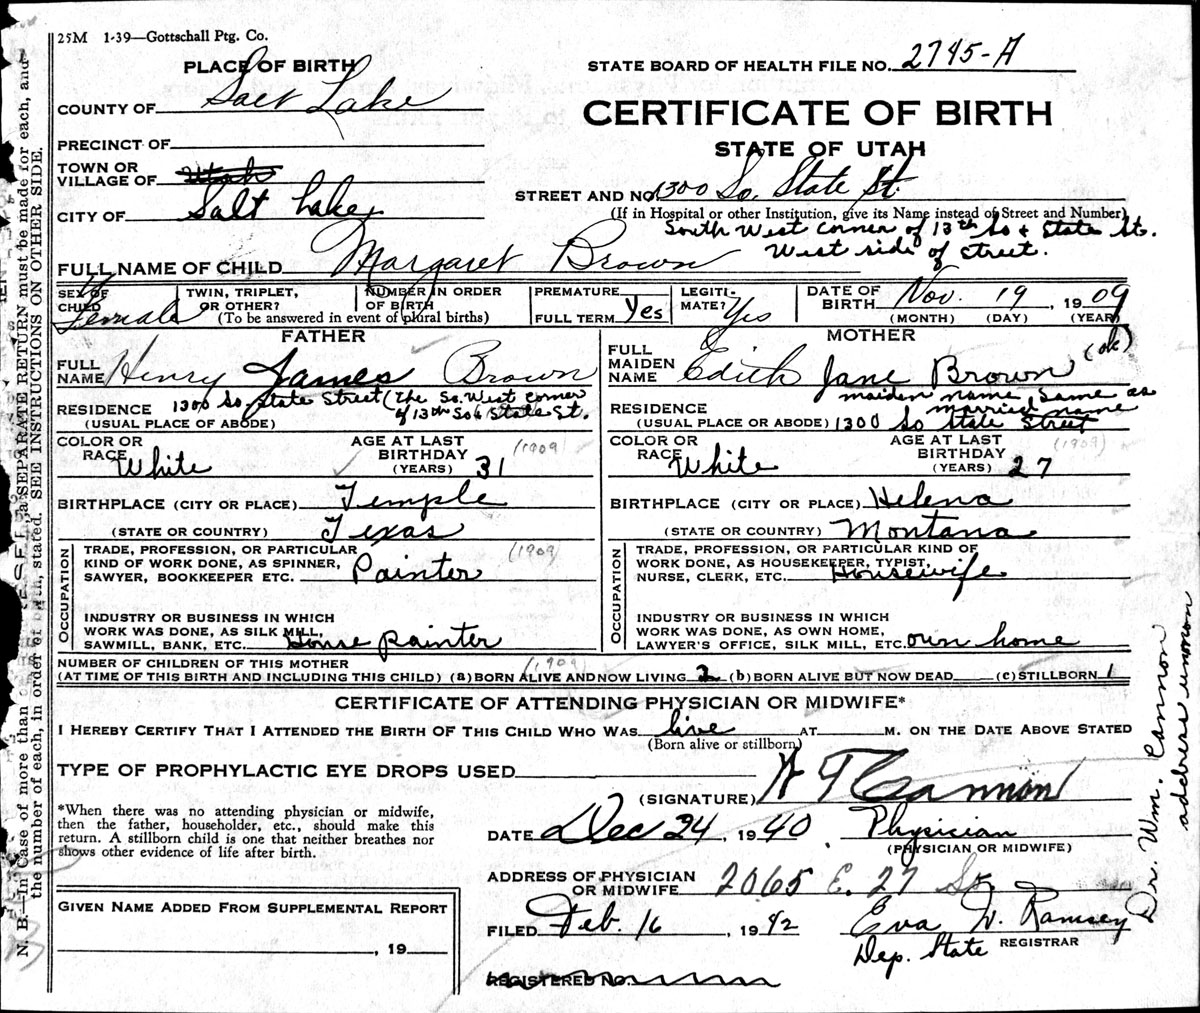 25M 1-39—Gottschall Ptg. Co.
PLACE OF BIRTH
STATE BOARD OF HEALTH FILE NO. 2745-A
COUNTY OF Salt Lake
CERTIFICATE OF BIRTH
PRECINCT OF
STATE OF UTAH
TOWN OR VILLAGE OF Utah
STREET AND NO. 1300 So. State St.
CITY OF Salt Lake
(If in Hospital or other Institution, give its Name instead of Street and Number)
South West corner of 13th So & State St.
West side of street.
FULL NAME OF CHILD Margaret Brown
SEX OF CHILD Female
TWIN, TRIPLET, OR OTHER?
NUMBER IN ORDER OF BIRTH
(To be answered in event of plural births)
PREMATURE
FULL TERM Yes
LEGITI-MATE? Yes
DATE OF BIRTH Nov. 19, 1909
(MONTH) (DAY) (YEAR)
FATHER
FULL NAME Henry James Brown
RESIDENCE 1300 So. State Street (The So. West corner
(USUAL PLACE OF ABODE) of 13th So & State St.
COLOR OR RACE White
AGE AT LAST BIRTHDAY (YEARS) 31 (1909)
BIRTHPLACE (CITY OR PLACE) Temple
(STATE OR COUNTRY) Texas
OCCUPATION
TRADE, PROFESSION, OR PARTICULAR (1909)
KIND OF WORK DONE, AS SPINNER,
SAWYER, BOOKKEEPER ETC. Painter
INDUSTRY OR BUSINESS IN WHICH
WORK WAS DONE, AS SILK MILL,
SAWMILL, BANK, ETC. House painter
MOTHER
FULL MAIDEN NAME Edith Jane Brown (ok)
maiden name, same as
RESIDENCE married name
(USUAL PLACE OR ABODE) 1300 So State Street
COLOR OR RACE White
AGE AT LAST BIRTHDAY (YEARS) 27 (1909)
BIRTHPLACE (CITY OR PLACE) Helena
(STATE OR COUNTRY) Montana
OCCUPATION
TRADE, PROFESSION, OR PARTICULAR KIND OF
WORK DONE, AS HOUSEKEEPER, TYPIST,
NURSE, CLERK, ETC. Housewife
INDUSTRY OR BUSINESS IN WHICH
WORK WAS DONE, AS OWN HOME,
LAWYER'S OFFICE, SILK MILL, ETC. own home
NUMBER OF CHILDREN OF THIS MOTHER (1909)
(AT TIME OF THIS BIRTH AND INCLUDING THIS CHILD) (a) BORN ALIVE AND NOW LIVING 2 (b) BORN ALIVE BUT NOW DEAD (c) STILLBORN 1
CERTIFICATE OF ATTENDING PHYSICIAN OR MIDWIFE*
I HEREBY CERTIFY THAT I ATTENDED THE BIRTH OF THIS CHILD WHO WAS live AT M. ON THE DATE ABOVE STATED
(Born alive or stillborn)
TYPE OF PROPHYLACTIC EYE DROPS USED
(SIGNATURE) W T Cannon
*When there was no attending physician or midwife,
then the father, householder, etc., should make this
return. A stillborn child is one that neither breathes nor
shows other evidence of life after birth.
DATE Dec 24, 1940 Physician
(PHYSICIAN OR MIDWIFE)
ADDRESS OF PHYSICIAN OR MIDWIFE 2065 E. 27 So.
GIVEN NAME ADDED FROM SUPPLEMENTAL REPORT
, 19
FILED Feb. 16, 1942 Eva W. Ramsey
Dep. State REGISTRAR
REGISTERED NO.
Dr. Wm. Cannon
address unknown
N. B.—In Case of more than one child at birth, a SEPARATE RETURN must be made for each, and
the number of each, in order of birth, stated. SEE INSTRUCTIONS ON OTHER SIDE.